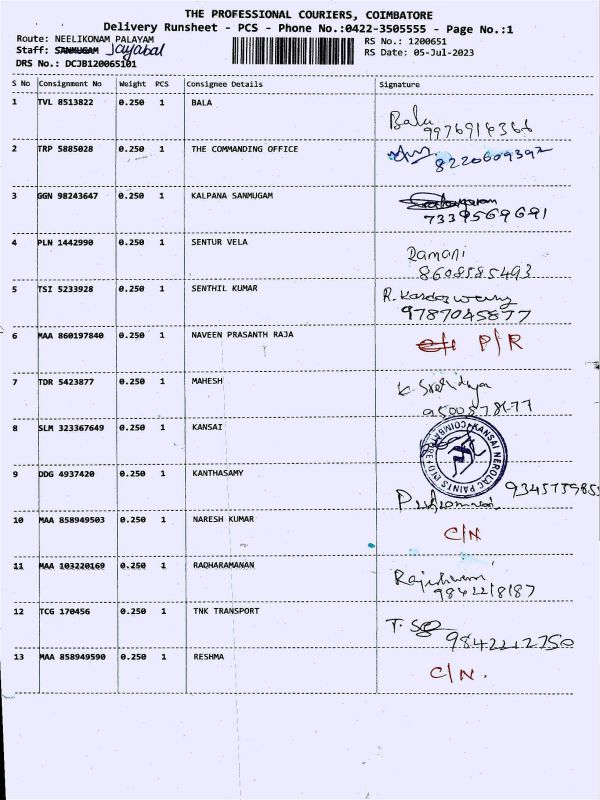 THE PROFESSIONAL COURIERS, COIMBATORE
Delivery Runsheet - PCS - Phone No.:0422-3505555 - Page No.:1
Route: NEELIKONAM PALAYAM
RS No.: 1200651
Staff: SANMUGAM Jayabal
RS Date: 05-Jul-2023
DRS No.: DCJB120065101
S No Consignment No Weight PCS Consignee Details Signature
1 TVL 8513822 0.250 1 BALA
Bala
9976919366
2 TRP 5885028 0.250 1 THE COMMANDING OFFICE
8220609392
3 GGN 98243647 0.250 1 KALPANA SANMUGAM
7339569691
4 PLN 1442990 0.250 1 SENTUR VELA
Ramani
8608585493
5 TSI 5233928 0.250 1 SENTHIL KUMAR
9787045877
6 MAA 860197840 0.250 1 NAVEEN PRASANTH RAJA
P/R
7 TDR 5423877 0.250 1 MAHESH
8 SLM 323367649 0.250 1 KANSAI
KANSAI NEROLAC PAINTS LTD COIMBATORE
9 DDG 4937420 0.250 1 KANTHASAMY
10 MAA 858949503 0.250 1 NARESH KUMAR
C/N
11 MAA 103220169 0.250 1 RADHARAMANAN
9842218187
12 TCG 170456 0.250 1 TNK TRANSPORT
9842212750
13 MAA 858949590 0.250 1 RESHMA
C/N.